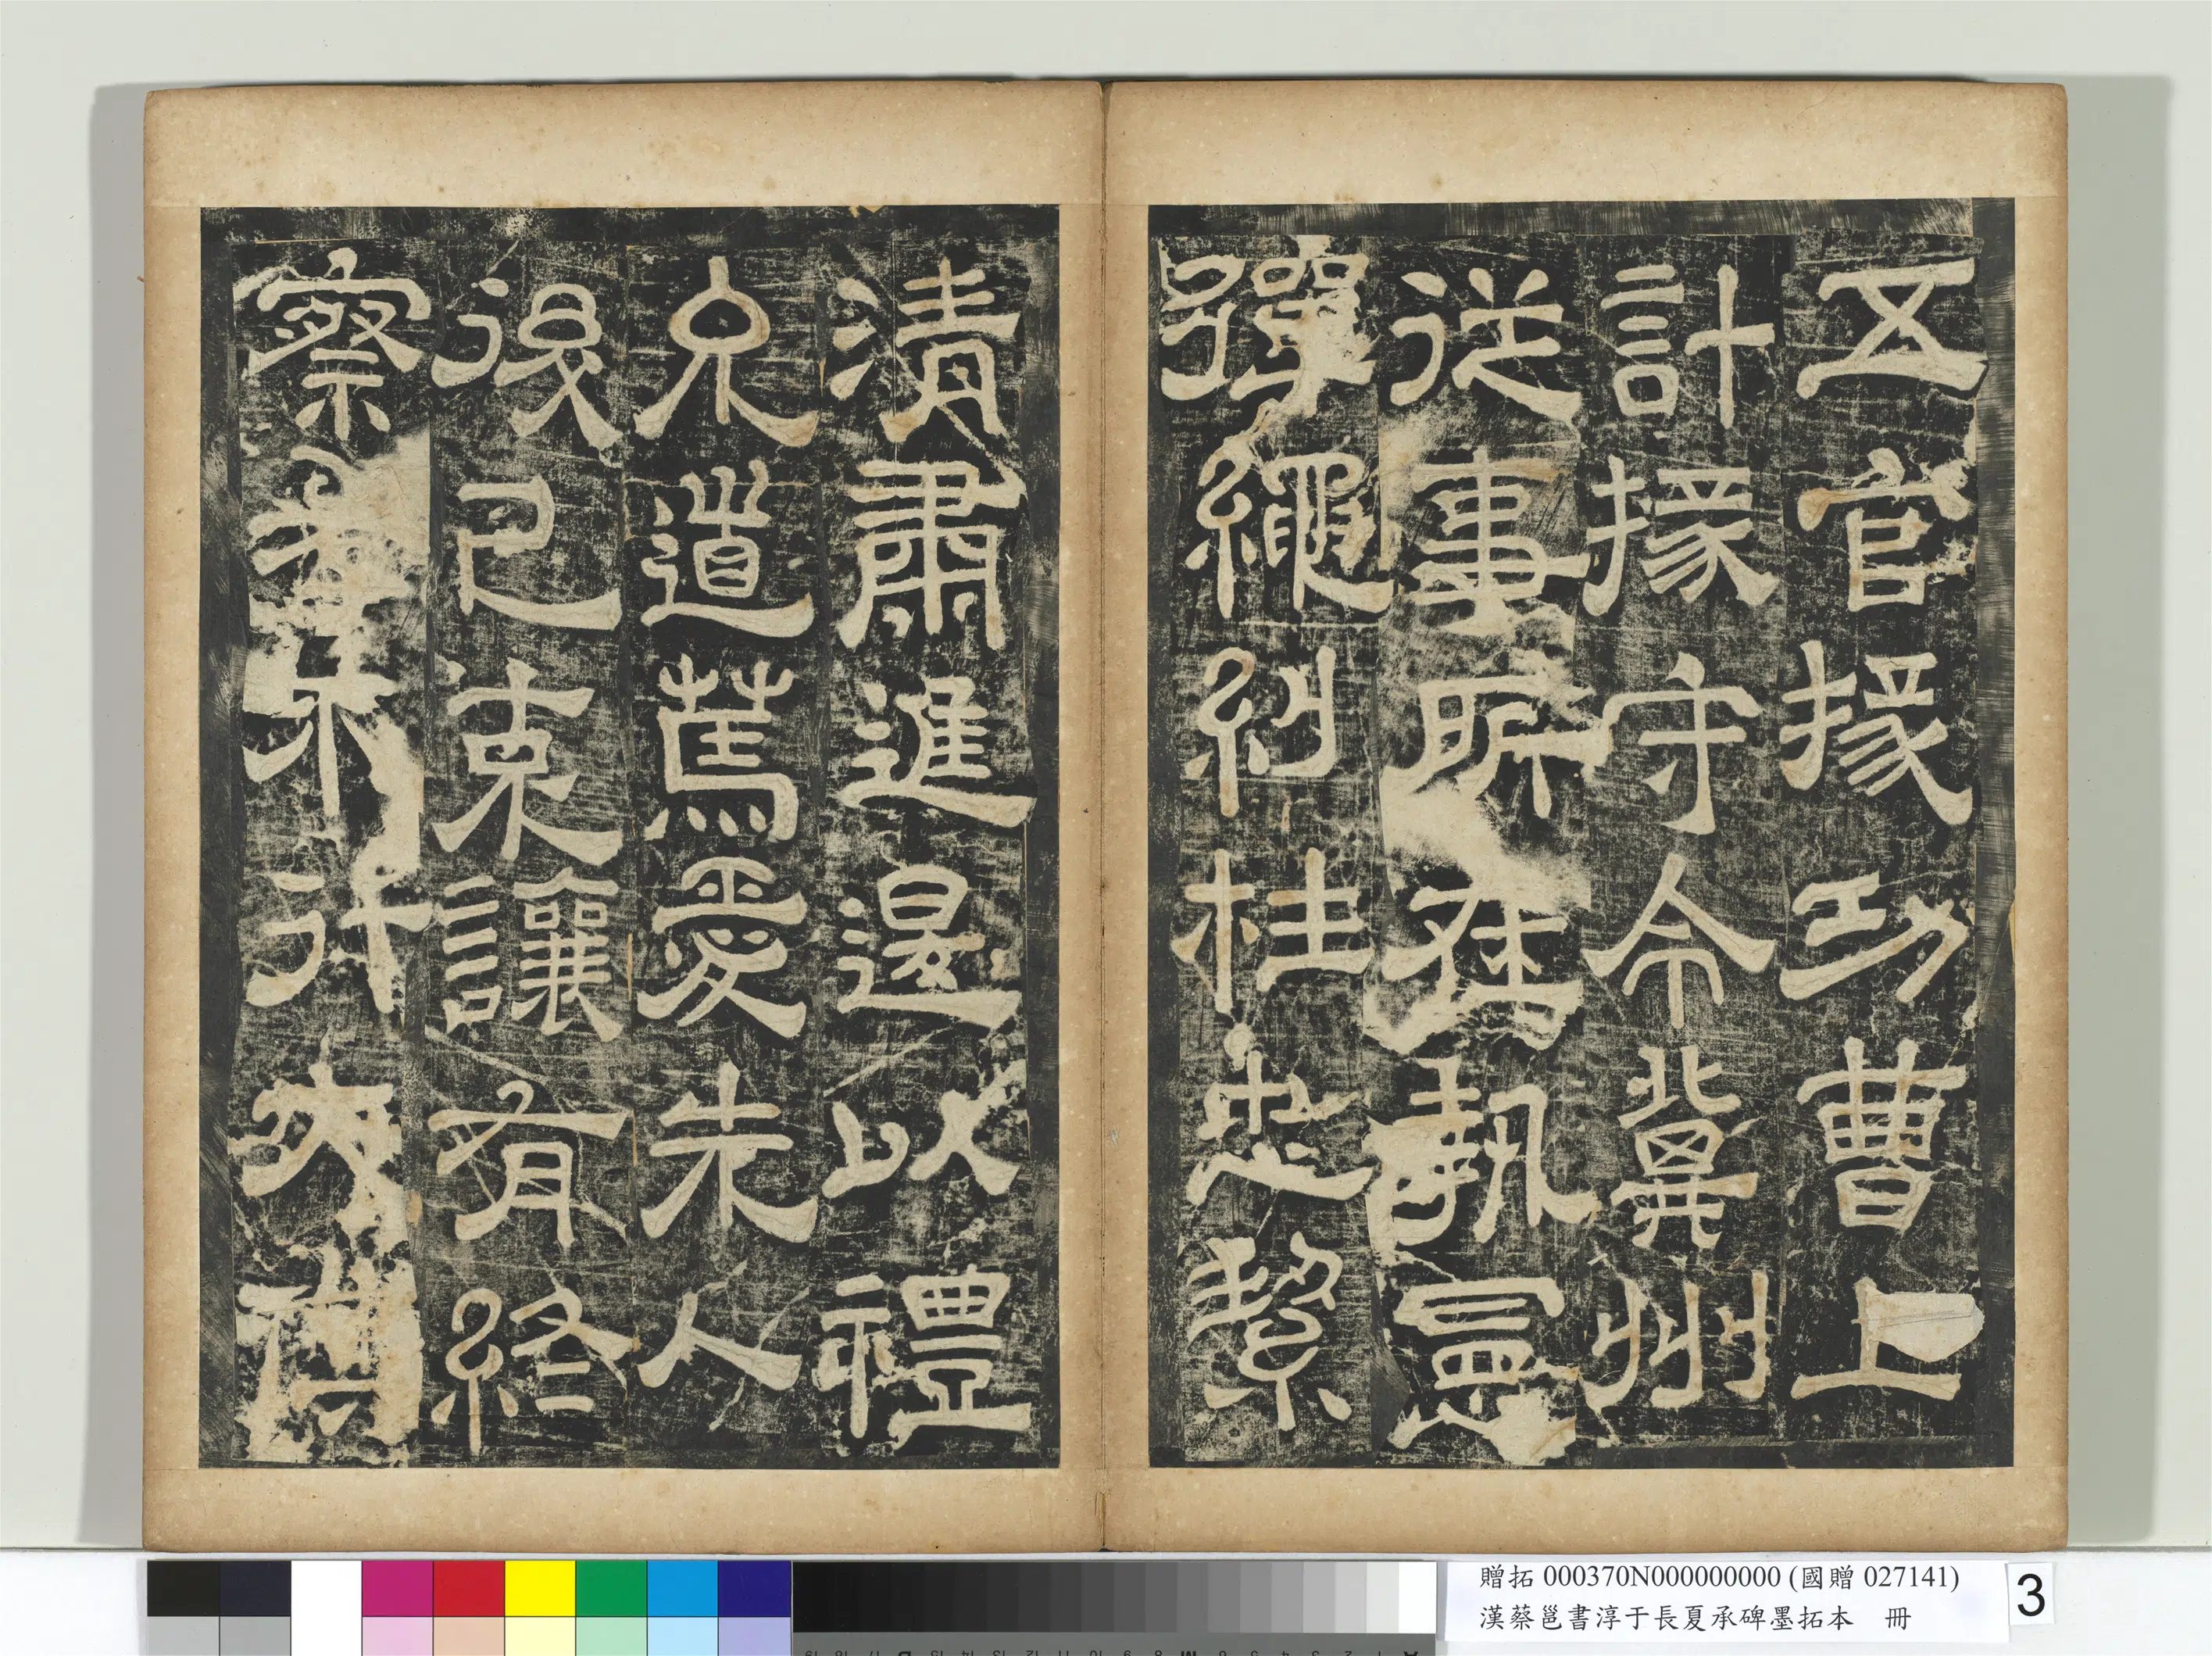 五官掾功曹上
計掾守令冀州
從事所在執憲
彈繩糾枉忠絜
清肅進退以禮
允道篤愛先人
後己克讓有終
察孝不行
贈拓 000370N000000000 (國贈 027141)
漢蔡邕書淳于長夏承碑墨拓本 冊
3